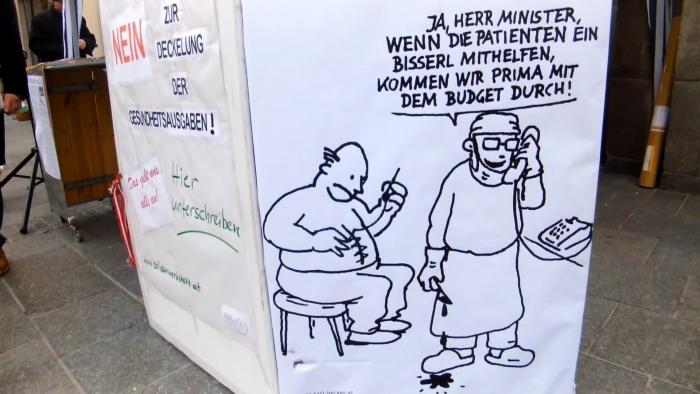 NEIN
ZUR
DECKELUNG
DER
GESUNDHEITSAUSGABEN!
Das geht uns
alle an!
Hier
unterschreiben
www.solidarwerkstatt.at
JA, HERR MINISTER,
WENN DIE PATIENTEN EIN
BISSERL MITHELFEN,
KOMMEN WIR PRIMA MIT
DEM BUDGET DURCH!